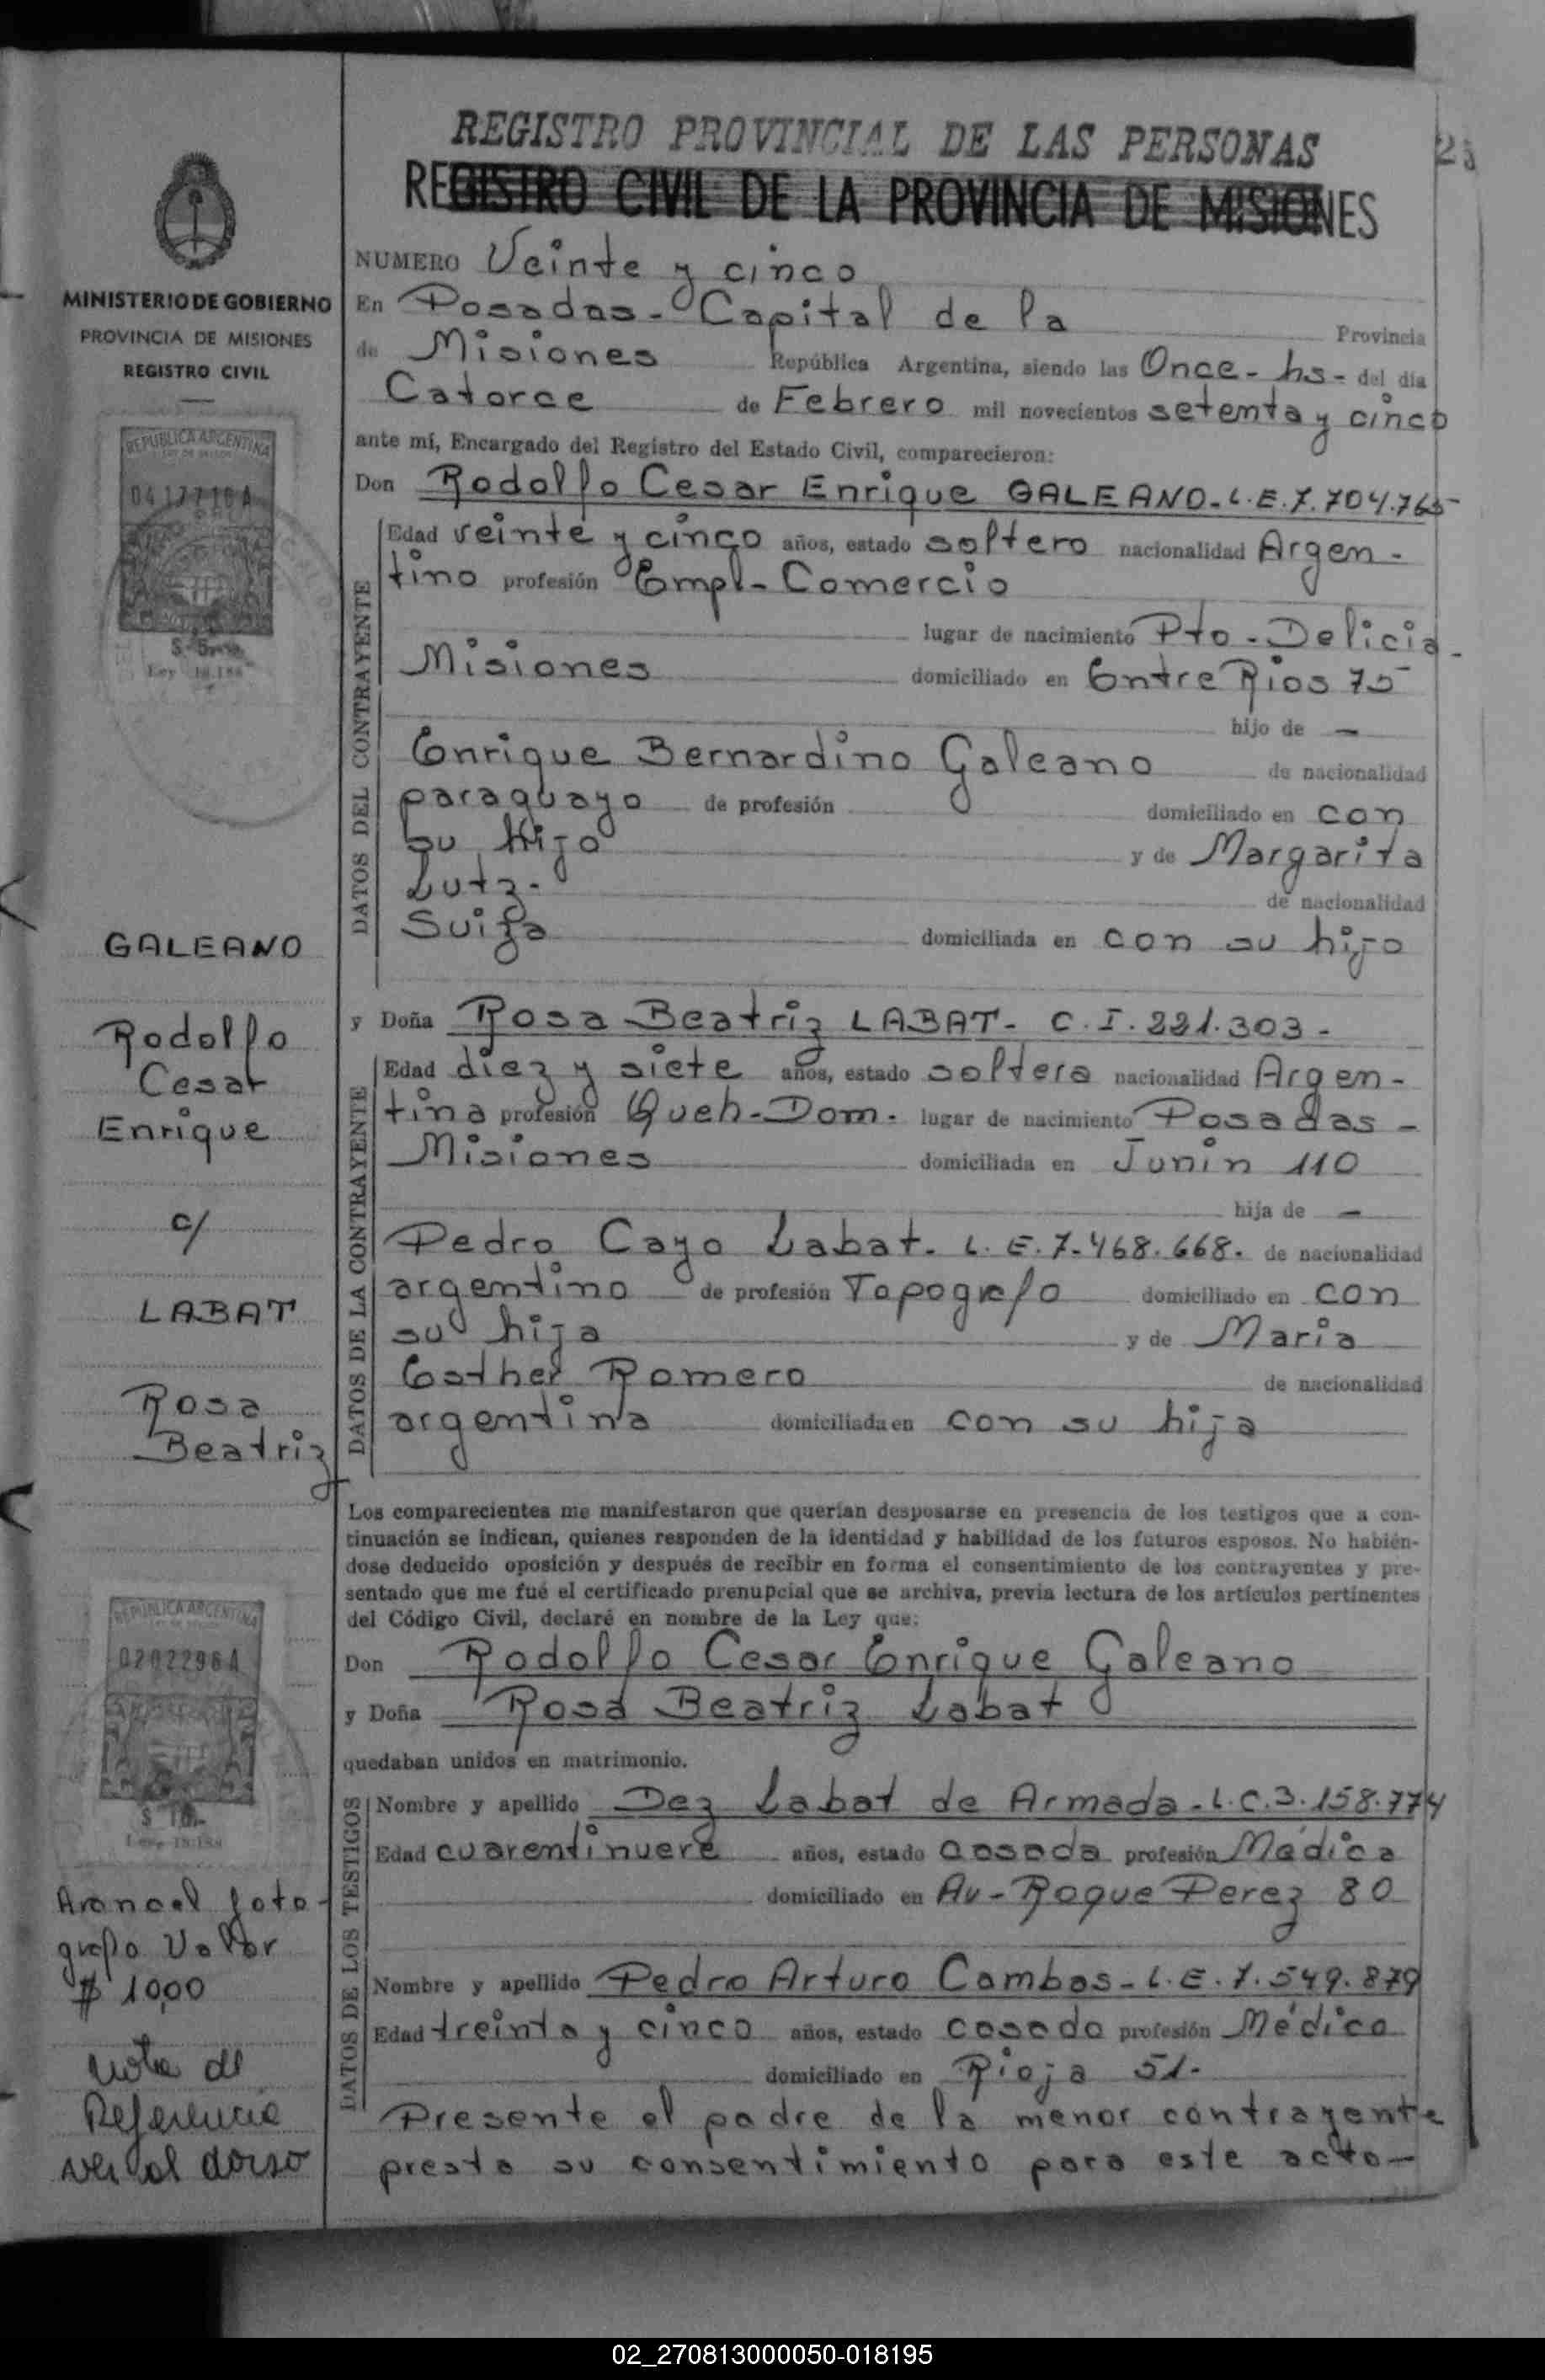 REGISTRO PROVINCIAL DE LAS PERSONAS
REGISTRO CIVIL DE LA PROVINCIA DE MISIONES
MINISTERIO DE GOBIERNO
PROVINCIA DE MISIONES
REGISTRO CIVIL
REPUBLICA ARGENTINA
GALEANO
Rodolfo
Cesar
Enrique
c/
LABAT
Rosa
Beatriz
REPUBLICA ARGENTINA
0202296A
$ 10.-
Arancel foto-
grafo Valor
$ 10,00
Nota de
Referencia
ver al dorso
NUMERO Veinte y cinco
En Posadas - Capital de la Provincia
de Misiones República Argentina, siendo las Once - hs - del día
Catorce de Febrero mil novecientos setenta y cinco
ante mí, Encargado del Registro del Estado Civil, comparecieron:
Don Rodolfo Cesar Enrique GALEANO - L.E. 7.704.765
DATOS DEL CONTRAYENTE
Edad veinte y cinco años, estado soltero nacionalidad Argen-
tino profesión Empl - Comercio
lugar de nacimiento Pto - Delicia -
Misiones domiciliado en Entre Rios 75
hijo de -
Enrique Bernardino Galeano de nacionalidad
paraguayo de profesión domiciliado en con
su hijo y de Margarita
Lutz - de nacionalidad
Suiza domiciliada en con su hijo
y Doña Rosa Beatriz LABAT - C.I. 221.303 -
DATOS DE LA CONTRAYENTE
Edad diez y siete años, estado soltera nacionalidad Argen-
tina profesión Queh - Dom - lugar de nacimiento Posadas -
Misiones domiciliada en Junin 110
hija de -
Pedro Cayo Labat - L.E. 7.468.668. de nacionalidad
argentino de profesión Topografo domiciliado en con
su hija y de Maria
Esther Romero de nacionalidad
argentina domiciliada en con su hija
Los comparecientes me manifestaron que querían desposarse en presencia de los testigos que a con-
tinuación se indican, quienes responden de la identidad y habilidad de los futuros esposos. No habién-
dose deducido oposición y después de recibir en forma el consentimiento de los contrayentes y pre-
sentado que me fué el certificado prenupcial que se archiva, previa lectura de los artículos pertinentes
del Código Civil, declaré en nombre de la Ley que:
Don Rodolfo Cesar Enrique Galeano
y Doña Rosa Beatriz Labat
quedaban unidos en matrimonio.
DATOS DE LOS TESTIGOS
Nombre y apellido Dez Labat de Armada - L.C. 3.158.774
Edad cuarentinueve años, estado casada profesión Médica
domiciliado en Av - Roque Perez 80
Nombre y apellido Pedro Arturo Cambas - L.E. 7.549.879
Edad treinta y cinco años, estado casado profesión Médico
domiciliado en Rioja 51 -
Presente el padre de la menor contrayente
presta su consentimiento para este acto -
02_270813000050-018195